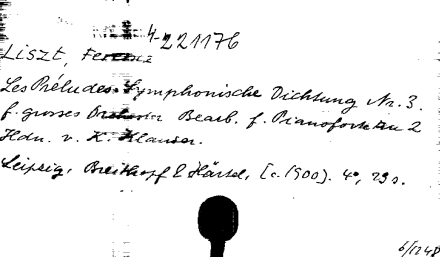 4-221176
Liszt, Ferenc
Les Préludes. Symphonische Dichtung Nr. 3.
f. grosses Orchester Bearb. f. Pianoforte zu 2
Hdn. v. K. Klauser.
Leipzig, Breitkopf & Härtel, [c. 1900]. 4°, 29 s.